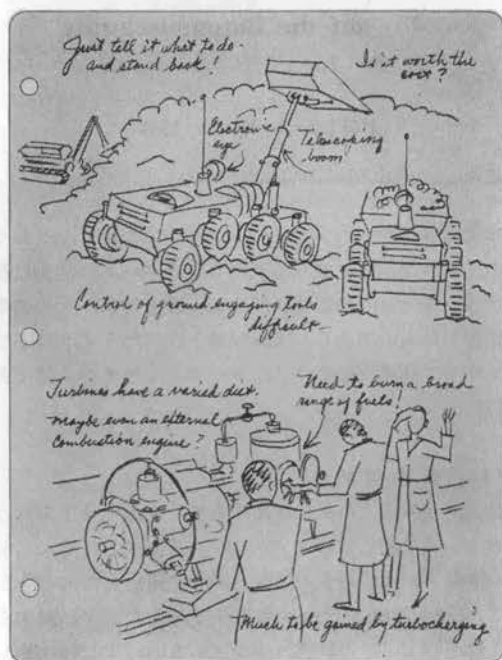 Just tell it what to do -
and stand back!
Is it worth the
cost?
Electronic
eye
Telescoping
boom
Control of ground engaging tools
difficult -
Turbines have a varied diet.
maybe even an external
combustion engine?
Need to burn a broad
range of fuels!
Much to be gained by turbocharging